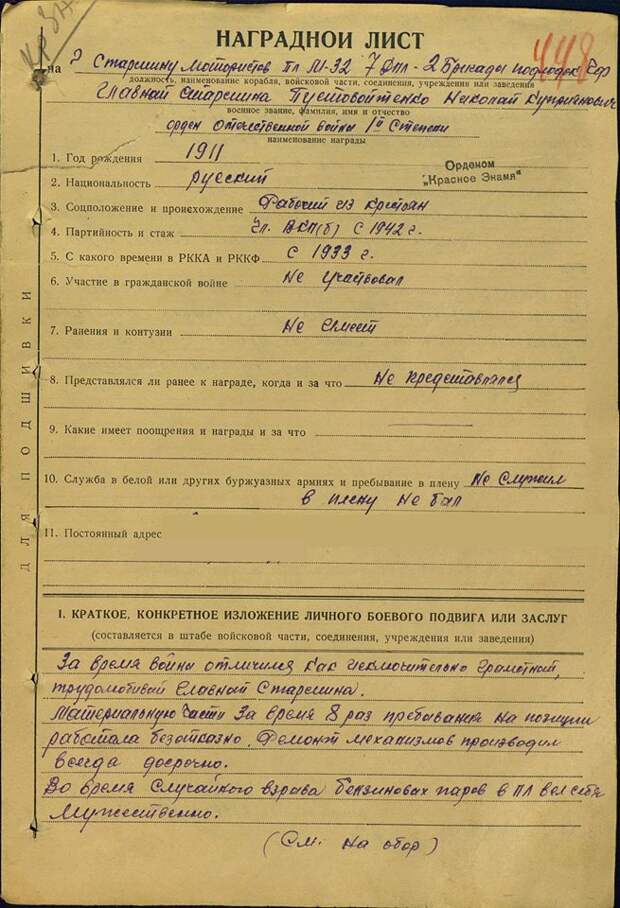 448
НАГРАДНОЙ ЛИСТ
на Старшину Мотористов Пл М-32 7 ДПЛ - 2 Бригады подлодок
должность, наименование корабля, войсковой части, соединения, учреждения или заведения
Главный старшина Пустовойтенко Николай Куприянович
военное звание, фамилия, имя и отчество
орден Отечественной войны 1й Степени
наименование награды
1. Год рождения 1911
Орденом
"Красное Знамя"
2. Национальность русский
3. Соцположение и происхождение Рабочий из Крестьян
4. Партийность и стаж Чл. ВКП(б) с 1942 г.
5. С какого времени в РККА и РККФ с 1933 г.
6. Участие в гражданской войне Не участвовал
7. Ранения и контузии Не имеет
8. Представлялся ли ранее к награде, когда и за что Не представлялся
9. Какие имеет поощрения и награды и за что
10. Служба в белой или других буржуазных армиях и пребывание в плену Не служил
в плену не был
11. Постоянный адрес
ДЛЯ ПОДШИВКИ
I. КРАТКОЕ, КОНКРЕТНОЕ ИЗЛОЖЕНИЕ ЛИЧНОГО БОЕВОГО ПОДВИГА ИЛИ ЗАСЛУГ
(составляется в штабе войсковой части, соединения, учреждения или заведения)
За время войны отличился как исключительно грамотный,
трудолюбивый Главный Старшина.
Материальную части за время 8 раз пребывания на позиции
работала безотказно. Ремонт механизмов производил
всегда досрочно.
Во время случайного взрыва бензиновых паров в ПЛ вел себя
Мужественно.
(См. на обор)